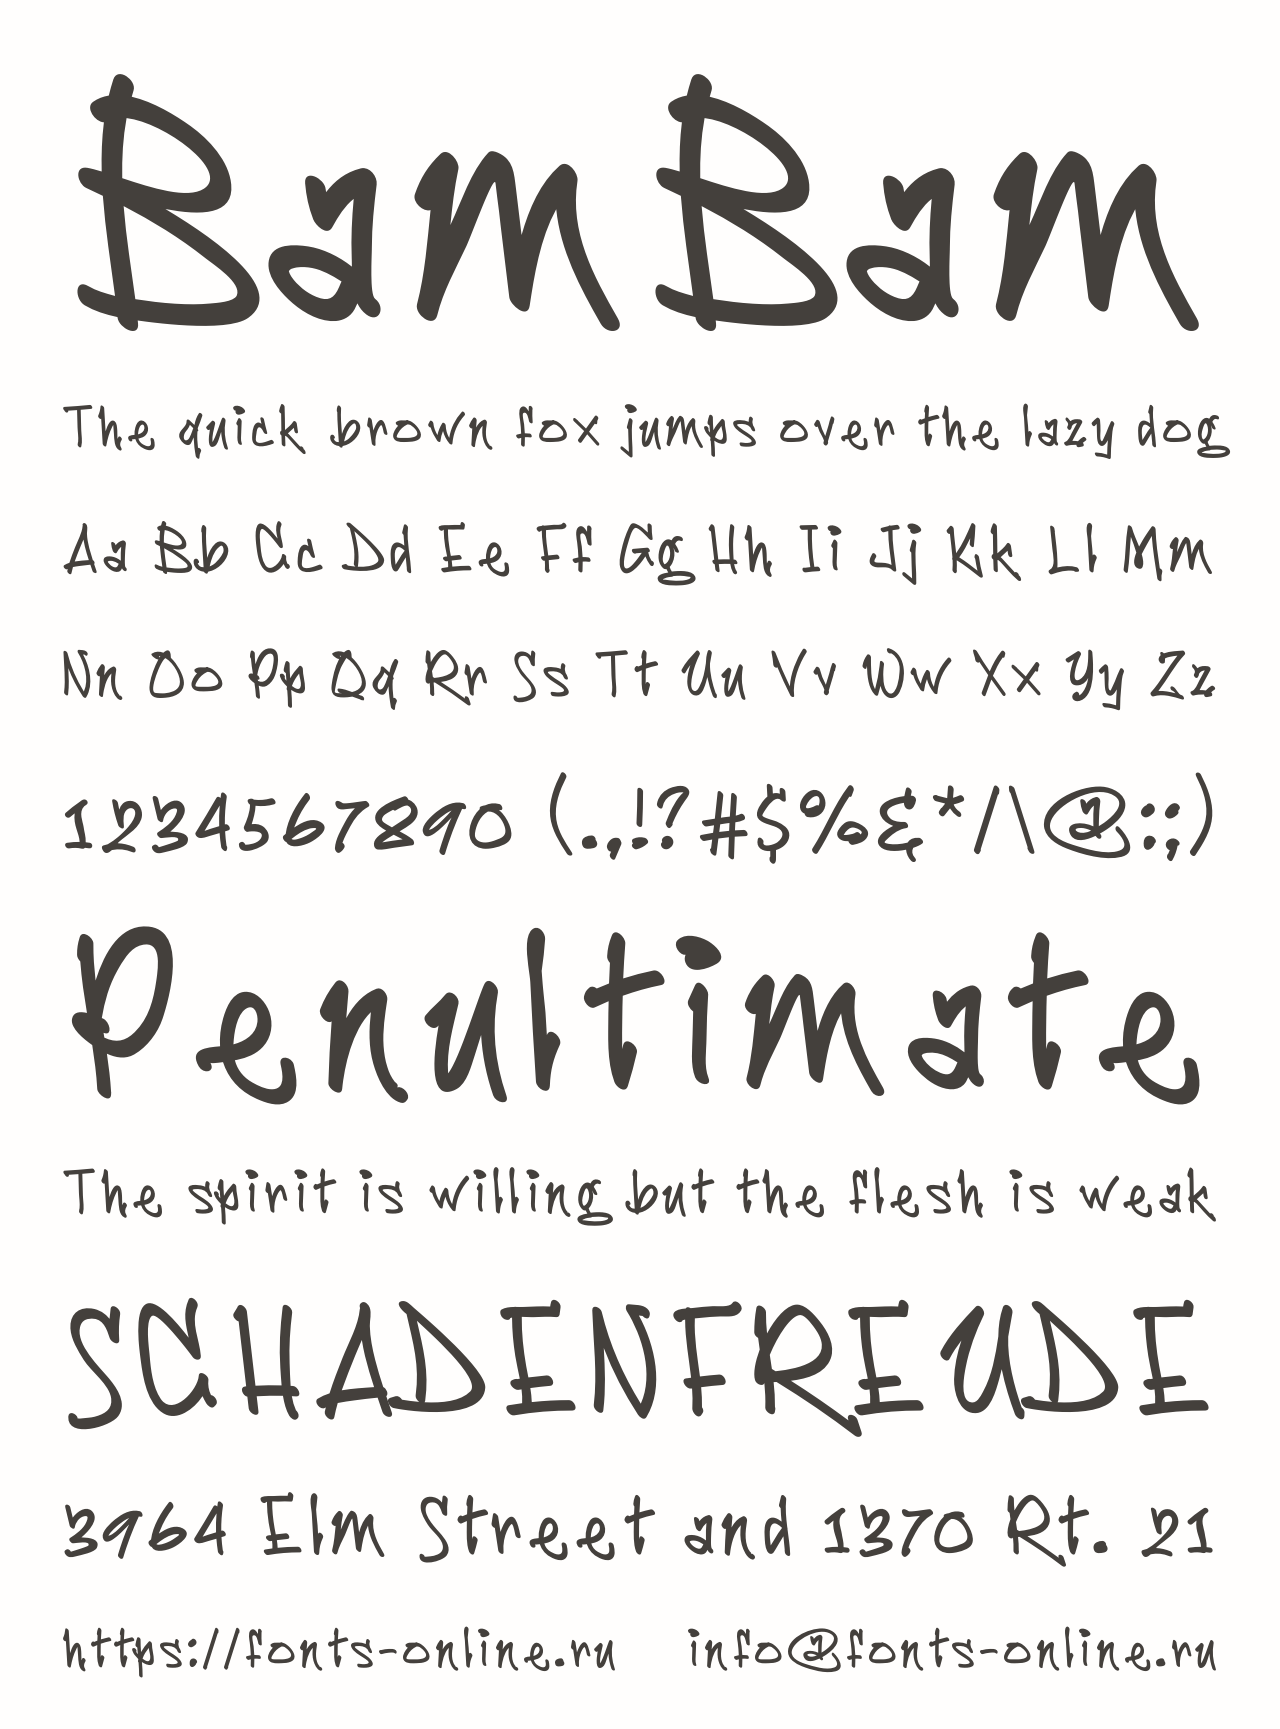 Bam Bam
The quick brown fox jumps over the lazy dog
Aa Bb Cc Dd Ee Ff Gg Hh Ii Jj Kk Ll Mm
Nn Oo Pp Qq Rr Ss Tt Uu Vv Ww Xx Yy Zz
1234567890 (.,!?#$%&*/\@:;)
Penultimate
The spirit is willing but the flesh is weak
SCHADENFREUDE
3964 Elm Street and 1370 Rt. 21
https://fonts-online.ru info@fonts-online.ru